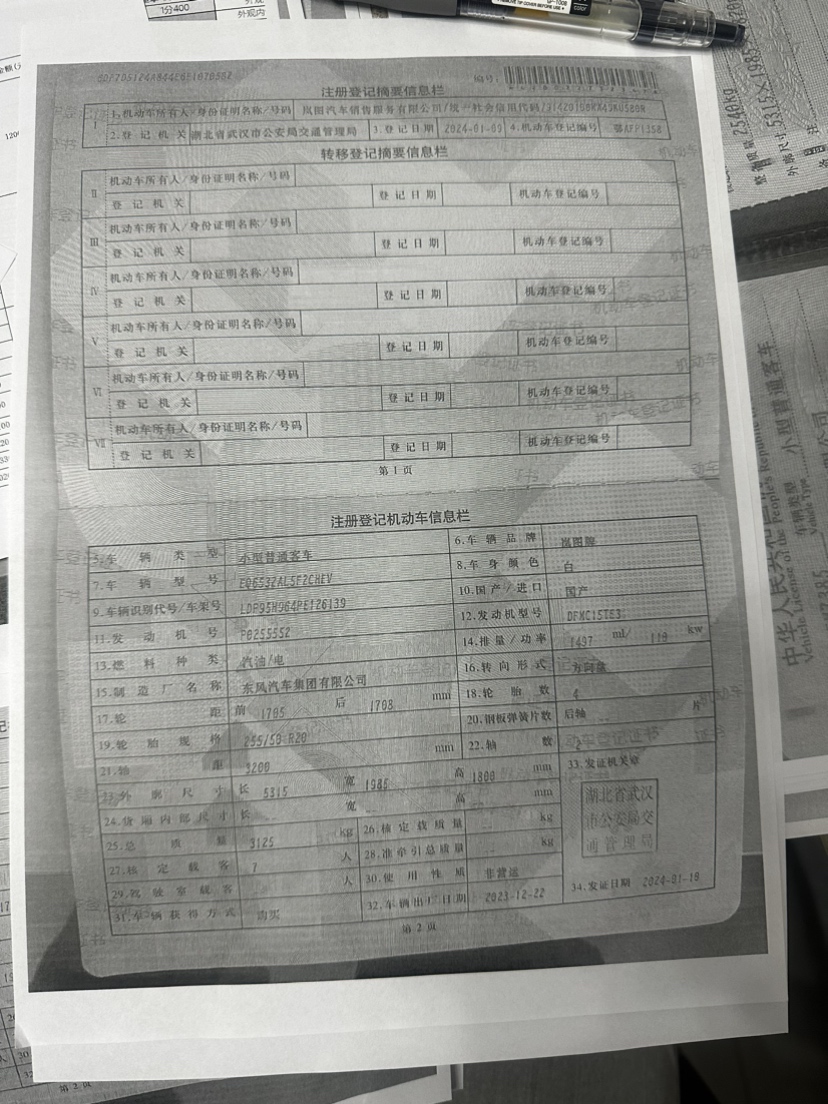 1分400
外观内
编号:
注册登记摘要信息栏
I 1.机动车所有人/身份证明名称/号码 岚图汽车销售服务有限公司/统一社会信用代码/
2.登记机关 湖北省武汉市公安局交通管理局 3.登记日期 2024-01-09 4.机动车登记编号
转移登记摘要信息栏
II 机动车所有人/身份证明名称/号码
登记机关 登记日期 机动车登记编号
III 机动车所有人/身份证明名称/号码
登记机关 登记日期 机动车登记编号
IV 机动车所有人/身份证明名称/号码
登记机关 登记日期 机动车登记编号
V 机动车所有人/身份证明名称/号码
登记机关 登记日期 机动车登记编号
VI 机动车所有人/身份证明名称/号码
登记机关 登记日期 机动车登记编号
VII 机动车所有人/身份证明名称/号码
登记机关 登记日期 机动车登记编号
第1页
注册登记机动车信息栏
5.车辆类型 小型普通客车 6.车辆品牌 岚图牌
7.车辆型号 EQ6532AL5F2CHEV 8.车身颜色 白
9.车辆识别代号/车架号 LDP95H964PE126139 10.国产/进口 国产
11.发动机号 P0255552 12.发动机型号 DFMC15TE3
13.燃料种类 汽油/电 14.排量/功率 1497 ml/ 110 kw
15.制造厂名称 东风汽车集团有限公司 16.转向形式 方向盘
17.轮距 前 1705 后 1708 mm 18.轮胎数 4
19.轮胎规格 255/50 R20 20.钢板弹簧片数 后轴 片
21.轴距 3200 mm 22.轴数 2
23.外廓尺寸 长 5315 宽 1985 高 1800 mm 33.发证机关章
24.货厢内部尺寸 长 宽 高 mm
湖北省武汉
市公安局交
通管理局
25.总质量 3125 kg 26.核定载质量 kg
27.核定载客 7 人 28.准牵引总质量 kg
29.驾驶室载客 人 30.使用性质 非营运
31.车辆获得方式 购买 32.车辆出厂日期 2023-12-22 34.发证日期 2024-01-18
第2页
整备质量 2540kg
外廓尺寸 5315×1985
中华人民共和国
Vehicle License of the People's Republic
车辆类型 小型普通客车
Vehicle Type
第2页